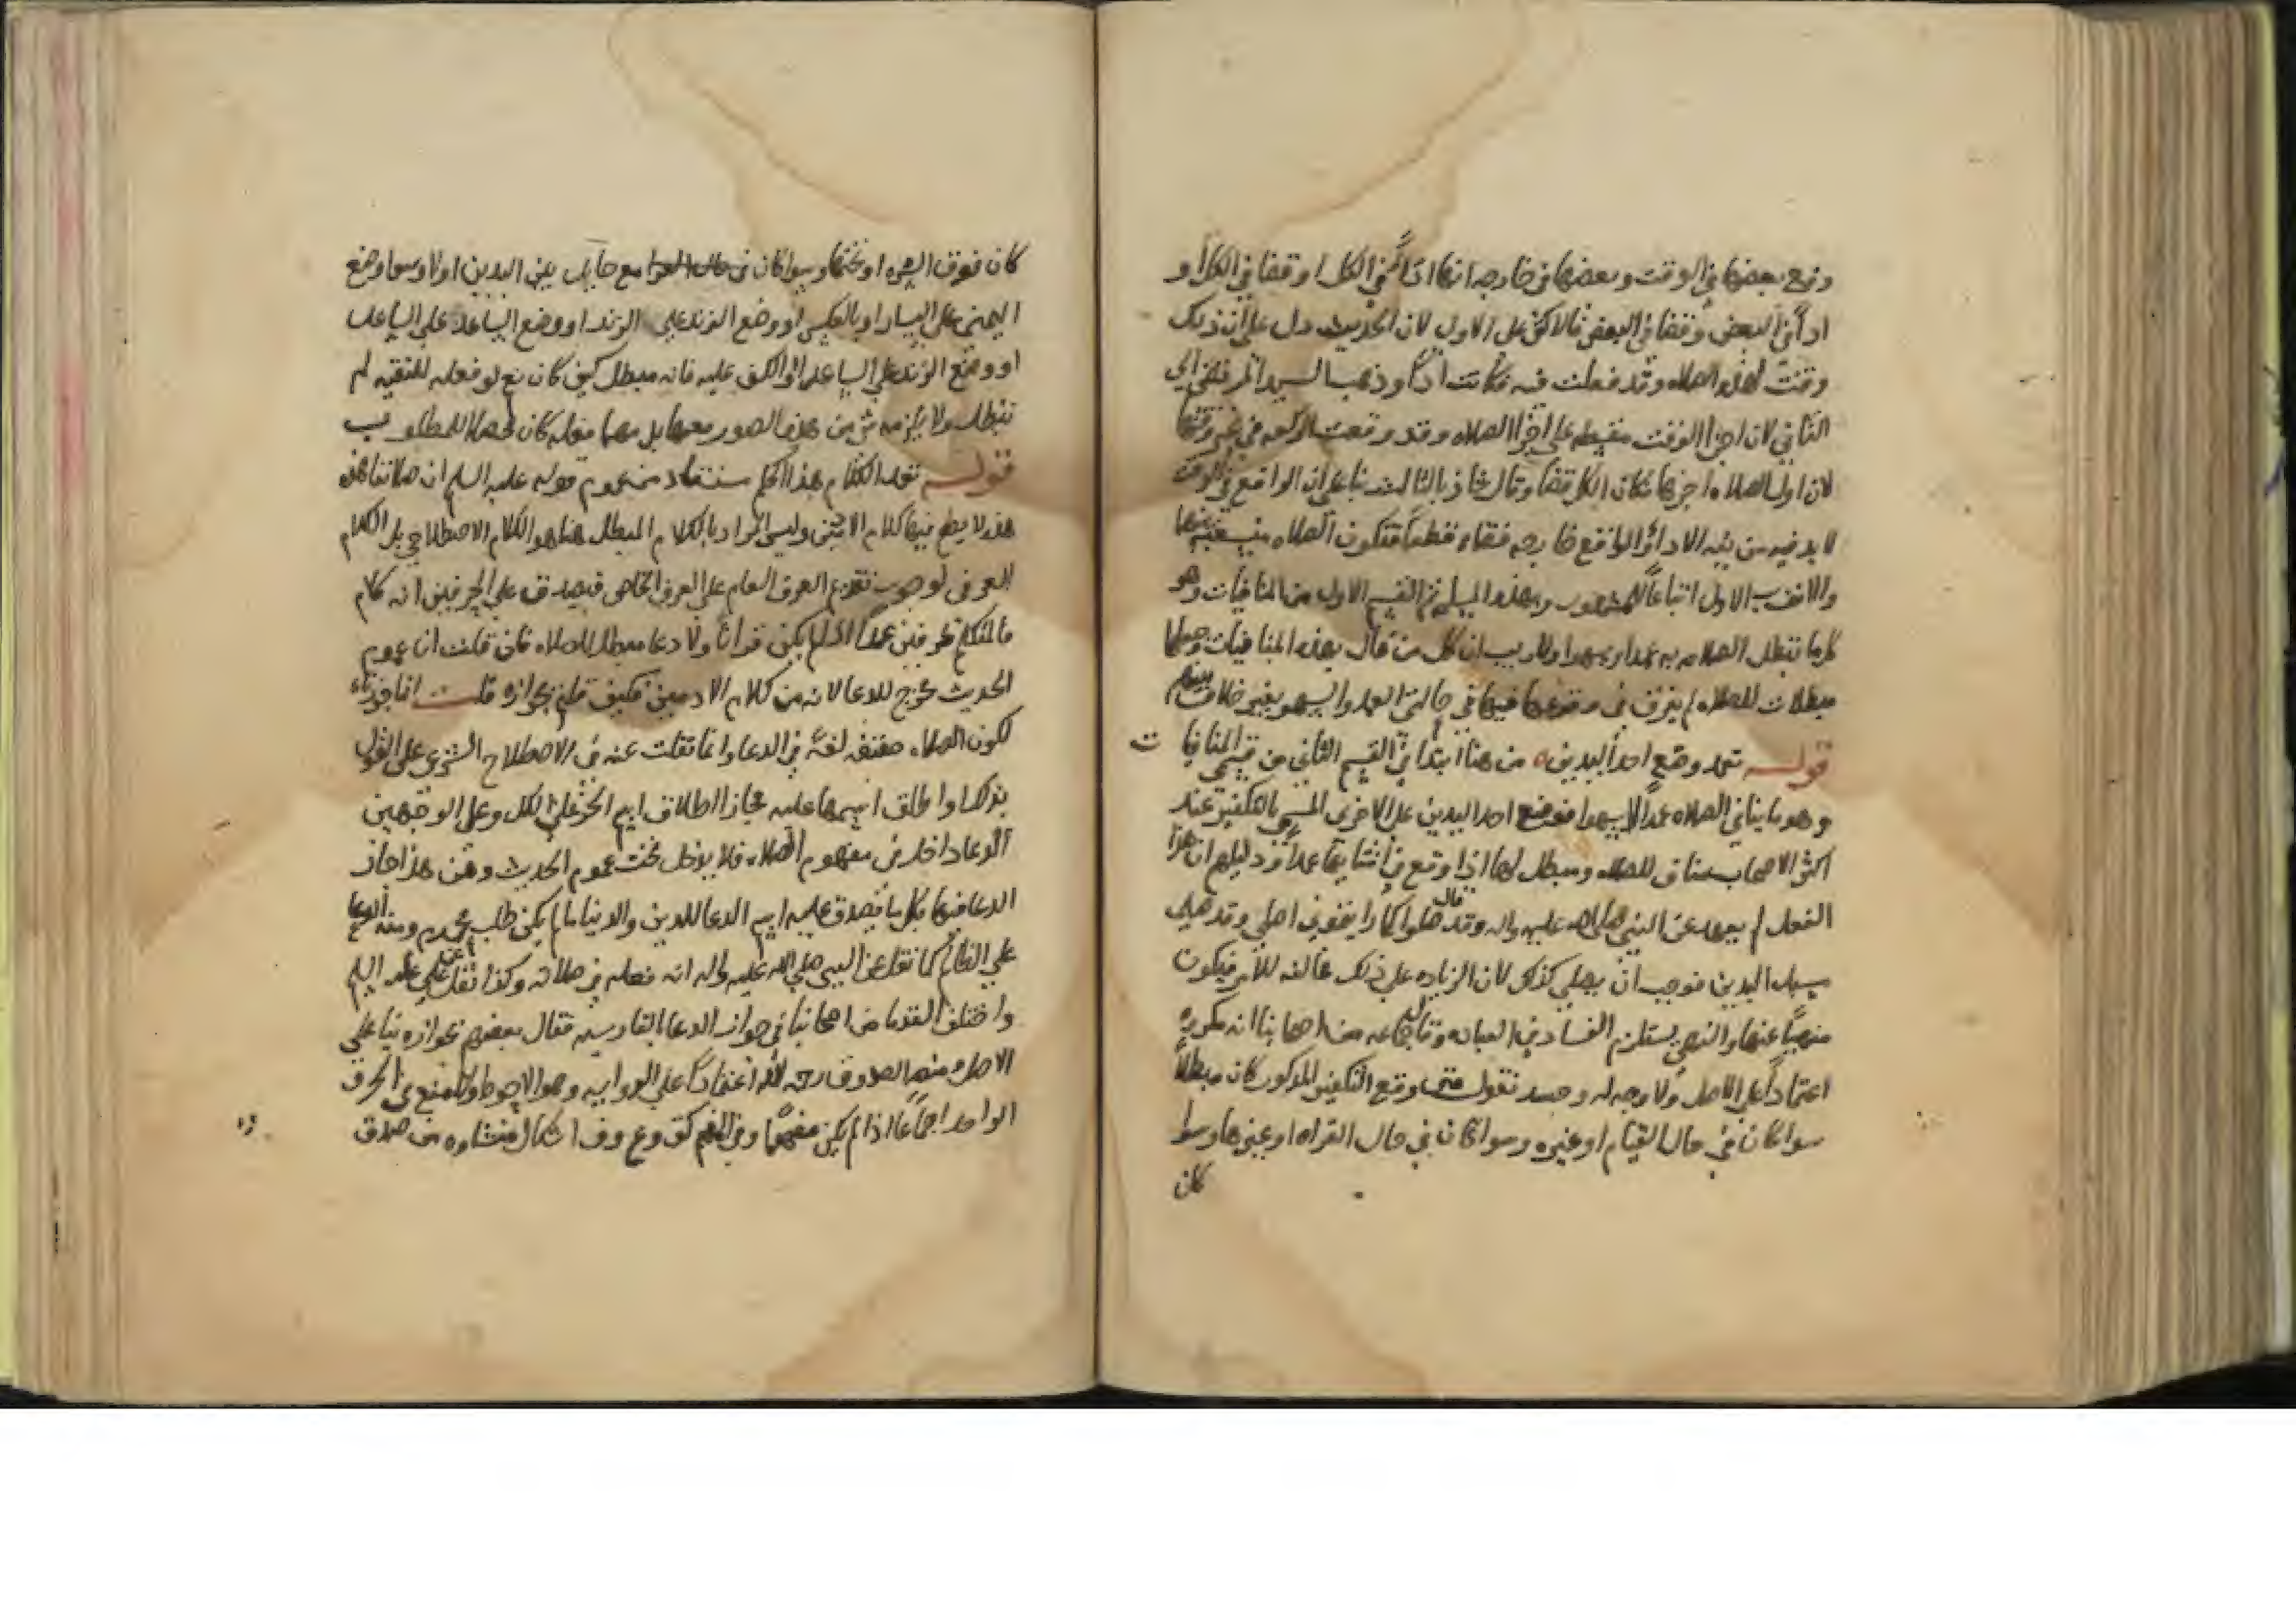 وقع بعضها في الوقت وبعضها في خارجه انها اداً في الكل او قضا في الكل او
اداً في البعض وقضا في البعض فالاكثر على الاول لان الحديث دل على ان ذلك
وقتٌ لهذه الصلاه وقد فعلت فيه فكانت اداً وذهب السيد المرتضى الى
الثاني لان اجزا الوقت مقسطه على اجزا الصلاه وقد وقعت الركعه في غير وقتها
لان اول الصلاه اخرها فكان الكل قضاً وقال شاذ بالثالث بنا على ان الواقع في الوقت
لا بد فيه من نيه الاداً والواقع خارجه فقضاء قطعاً فتكون الصلاه
والاقرب الاول اتباعاً للمشهور وبهذه المسله تم القسم الاول من المنافيات وهو
كل ما تبطل الصلاه به عمدا وسهوا ولا ريب ان كل من قال بهذه المنافيات وجعلها
مبطلات للصلاه لم يفرق في وقوعها فيها في حالتي العمد والسهو بغير خلاف بينهم
قوله تعمد وضع احد اليدين ه من هنا ابتدا في القسم الثاني من قسمي المنافيات
وهو ما ينافي الصلاه عمداً لا سهوا فوضع احد اليدين على الاخرى المسمى بالتكفير عند
اكثر الاصحاب مناف للصلاه ومبطل لها اذا وقع في اثنايها عمداً ودليلهم ان هذا
الفعل لم يعهد عن النبي صلى الله عليه واله وقد قال صلوا كما رايتموني اصلي وقد صلى
مسبل اليدين فوجب ان يصلي كذلك لان الزياده على ذلك مخالفه للامر فيكون
منهياً عنها والنهي يستلزم الفساد في العباده وقال جماعه من اصحابنا انه مكروه
اعتماداً على الاصل ولا وجه له وحينئذ نقول متى وقع التكفير المذكور كان مبطلاً
سوا كان في حال القيام او غيره وسوا كان في حال القراه او غيرها وسوا
كان
كان فوق السره او تحتها وسوا كان مع حايل بين اليدين اولا وسوا وضع
اليمنى على اليسار او بالعكس او وضع الزند على الزند او وضع الساعد على الساعد
او وضع الزند على الساعد او الكف عليه فانه مبطل كيف كان نعم لو فعله للتقيه لم
تبطل ولا يلزمه شي من هذه الصور بعينها بل مهما فعله كان محصلا للمطلوب
قوله تعمد الكلام هذا الحكم مستفاد من عموم قوله عليه السلم ان صلاتنا هذه
هذه لا يصلح فيها كلام الادميين وليس المراد بالكلام المبطل هنا هو الكلام الاصطلاحي بل الكلام
العرفي لوجوب تقديم العرف العام على العرف الخاص فيصدق على الحرفين انه كلام
فالمتكلم بحرفين عمداً اذا لم يكن قراناً ولا دعا مبطل للصلاه فان قلت ان عموم
الحديث مخرج للدعا لانه من كلام الادميين فكيف قلتم بجوازه قلت انما جوزناه
لكون الصلاه حقيقه لغةً في الدعا وانما نقلت عنه في الاصطلاح الشرعي على القول
بذلك او اطلق اسمها عليه مجازا اطلاق اسم الجزء على الكل وعلى الوجهين
الدعا داخل في مفهوم الصلاه فلا يدخل تحت عموم الحديث ومن هذا جاز
الدعا فيها بكل ما يصدق عليه اسم الدعا للدين والدنيا ما لم يكن طلب محرم ومنه الدعا
على الظالم كما نقل عن النبي صلى الله عليه واله انه فعله في صلاته وكذا نقل عن علي عليه السلم
واختلف القدما من اصحابنا في جواز الدعا بالفارسيه فقال بعضهم بجوازه بنا على
الاصل ومنهم الصدوق رحمه الله اعتماداً على الروايه وهو الاحوط
الواحد اجماعاً اذا لم يكن مفهماً وفي المفهم كق وع وف اشكال منشاوه من صدق